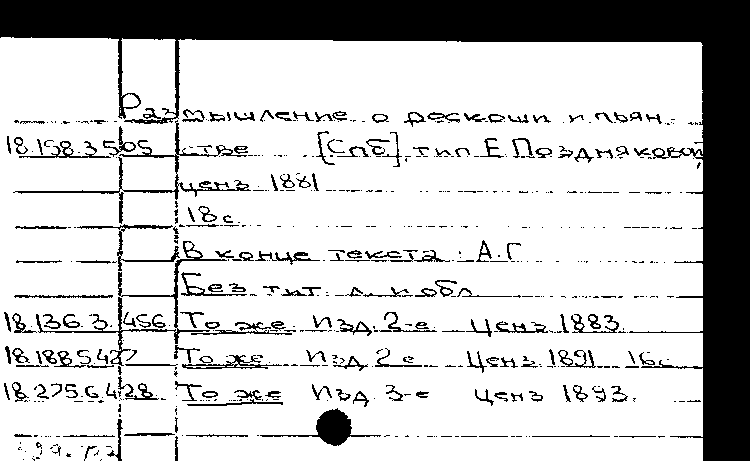 Размышление о роскоши и пьян-
18.158.3.505 стве [Спб], тип Е Поздняковой,
ценз 1881
18с
В конце текста: А.Г
Без тит. л. и обл
18.136.3.456 То же Изд. 2-е Ценз 1883.
18.188.5.427 То же Изд 2 е Ценз 1891 16с
18.275.6.428 То же Изд 3-е Ценз 1893.